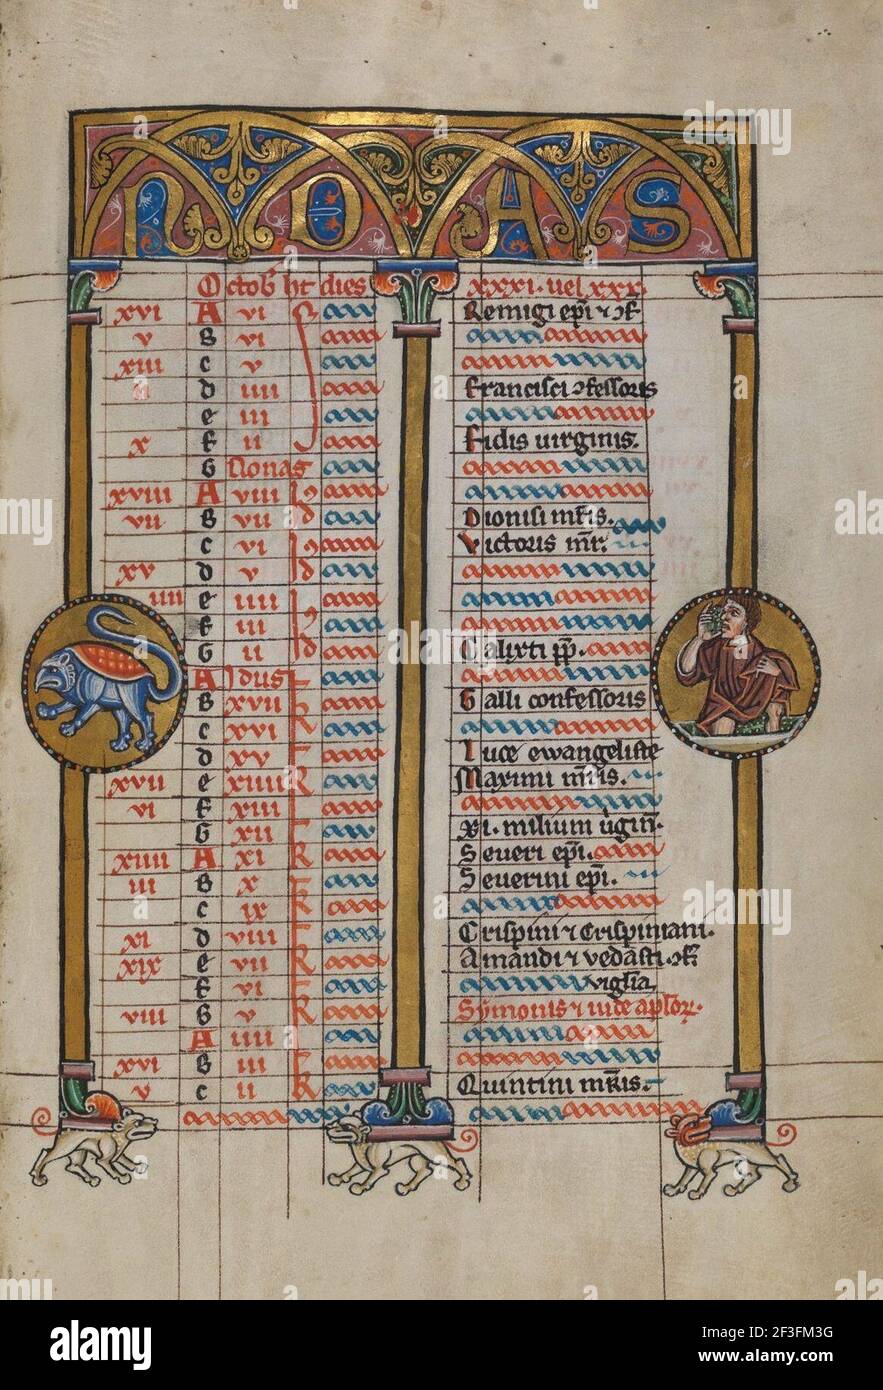 N O A S
Octob ht dies xxxi. uel xxx.
xvi A vi Remigi epi ⁊ ɔf.
v B vi
xiii c v
d iiii Francisci ɔfessoris
e iii
x f ii Fidis uirginis.
G Nonas
xviii A viii Id
vii B vii Id Dionisi mris.
c vi Id Victoris mr.
xv d v Id
iiii e iiii Id
f iii Id
G ii Id Calixti pp.
A Idus
B xvii k Galli confessoris
c xvi k
d xv k Luce ewangeliste
xvii e xiiii k Maximi mris.
vi f xiii k
G xii k xi. milium uginū.
xiiii A xi k Seueri epi.
iii B x k Seuerini epi.
c ix k
xi d viii k Crispini ⁊ Crispiniani.
xix e vii k Amandi ⁊ vedasti. ɔf.
f vi k viglia
viii G v k Symonis ⁊ iude aplor.
A iiii k
xvi B iii k
v c ii k Quintini mris.
alamy
Image ID: 2F3FM3G
www.alamy.com